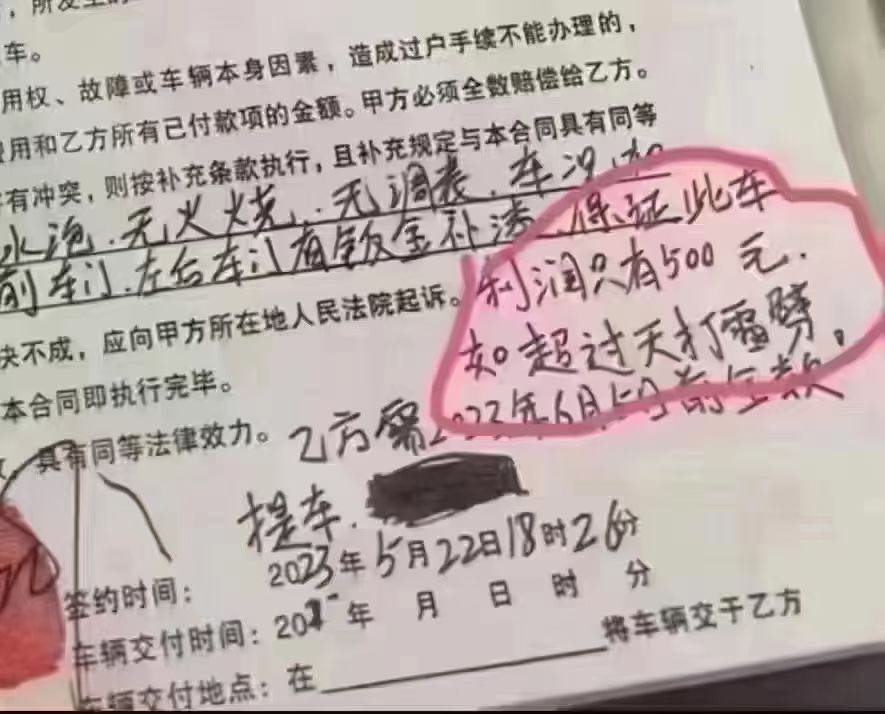 ，所发生的
车。
用权、故障或车辆本身因素，造成过户手续不能办理的，
费用和乙方所有已付款项的金额。甲方必须全数赔偿给乙方。
有冲突，则按补充条款执行，且补充规定与本合同具有同等
水泡.无火烧.无调表.车况
前车门.左后车门有钣金补漆.保证此车
利润只有500元.
决不成，应向甲方所在地人民法院起诉。
如超过天打雷劈。
本合同即执行完毕。
具有同等法律效力。乙方需2023年6月5日前全款
提车.
签约时间：2023年5月22日18时26分
车辆交付时间：202年 月 日 时 分
车辆交付地点：在 将车辆交于乙方